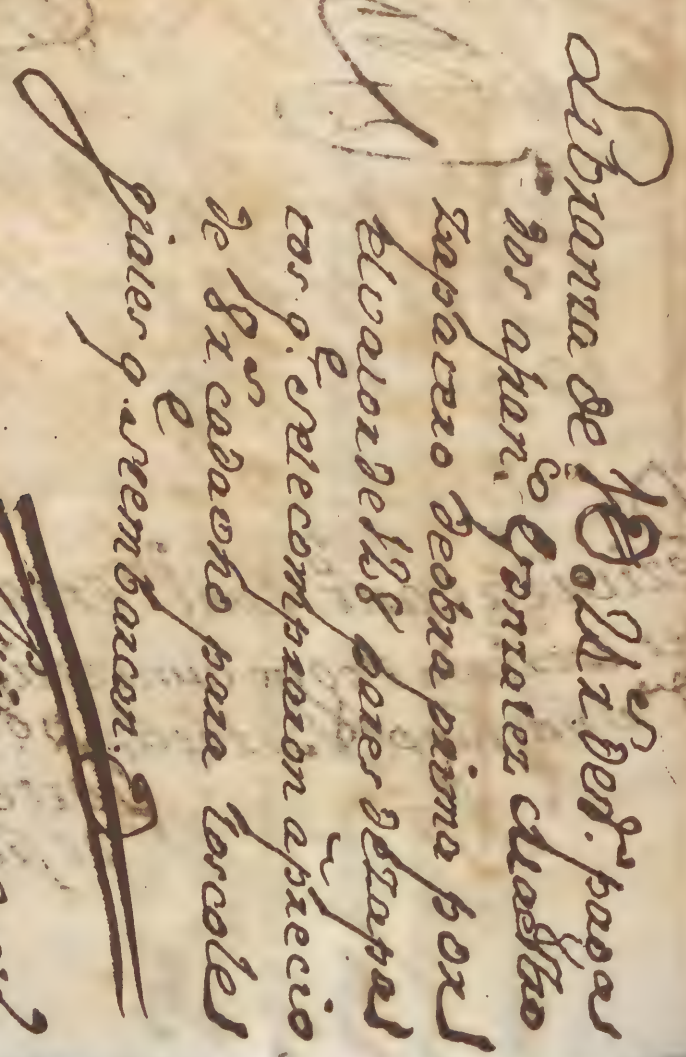 Libranza de r.s Dev.n paga
dos a fran.co Gonzalez Maestro
Zapatero deobra prima por
el valor de 128 pares de Zapa
tos q.e sele compraron a precio
de 8 r.s cada uno para los cole
giales q.e se embarcan.